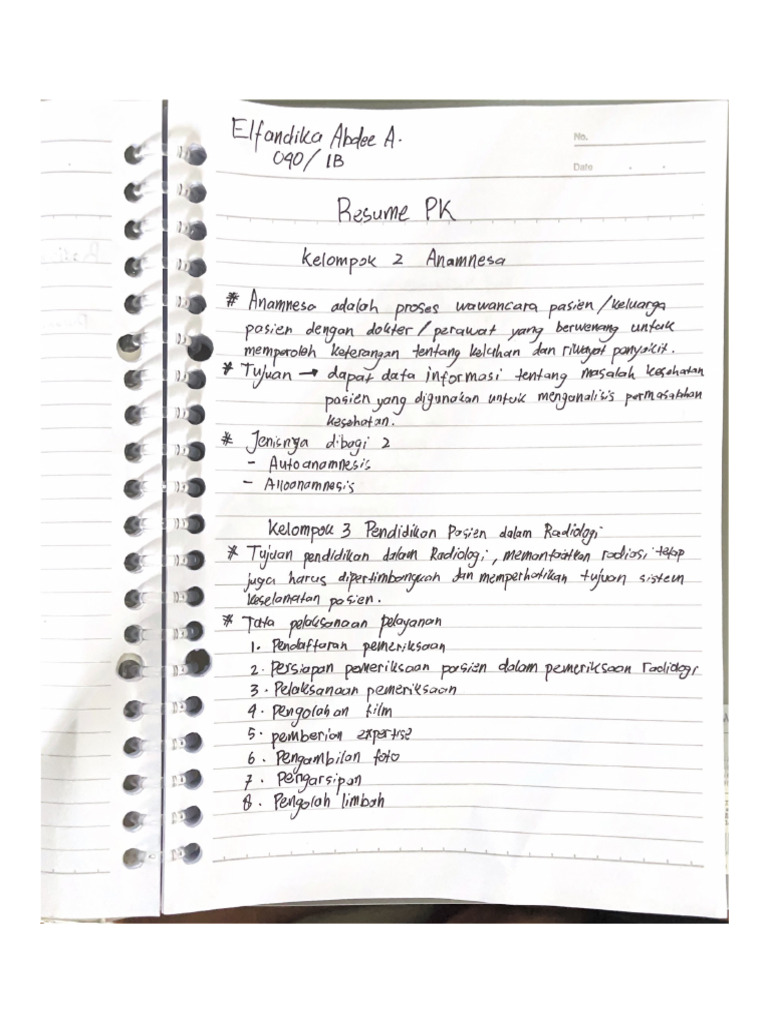 Elfandika Abdee A.
090/1B
No.
Date
Resume PK
Kelompok 2 Anamnesa
* Anamnesa adalah proses wawancara pasien/keluarga
pasien dengan dokter/perawat yang berwenang untuk
memperoleh keterangan tentang keluhan dan riwayat penyakit.
* Tujuan → dapat data informasi tentang masalah kesehatan
pasien yang digunakan untuk menganalisis permasalahan
kesehatan.
* Jenisnya dibagi 2
- Autoanamnesis
- Alloanamnesis
Kelompok 3 Pendidikan Pasien dalam Radiologi
* Tujuan pendidikan dalam Radiologi, memanfaatkan radiasi tetap
juga harus dipertimbangkan dan memperhatikan tujuan sistem
keselamatan pasien.
* Tata pelaksanaan pelayanan
1. Pendaftaran pemeriksaan
2. Persiapan pemeriksaan pasien dalam pemeriksaan radiologi
3. Pelaksanaan pemeriksaan
4. Pengolahan film
5. pemberian expertise
6. Pengambilan foto
7. Pengarsipan
8. Pengolah limbah